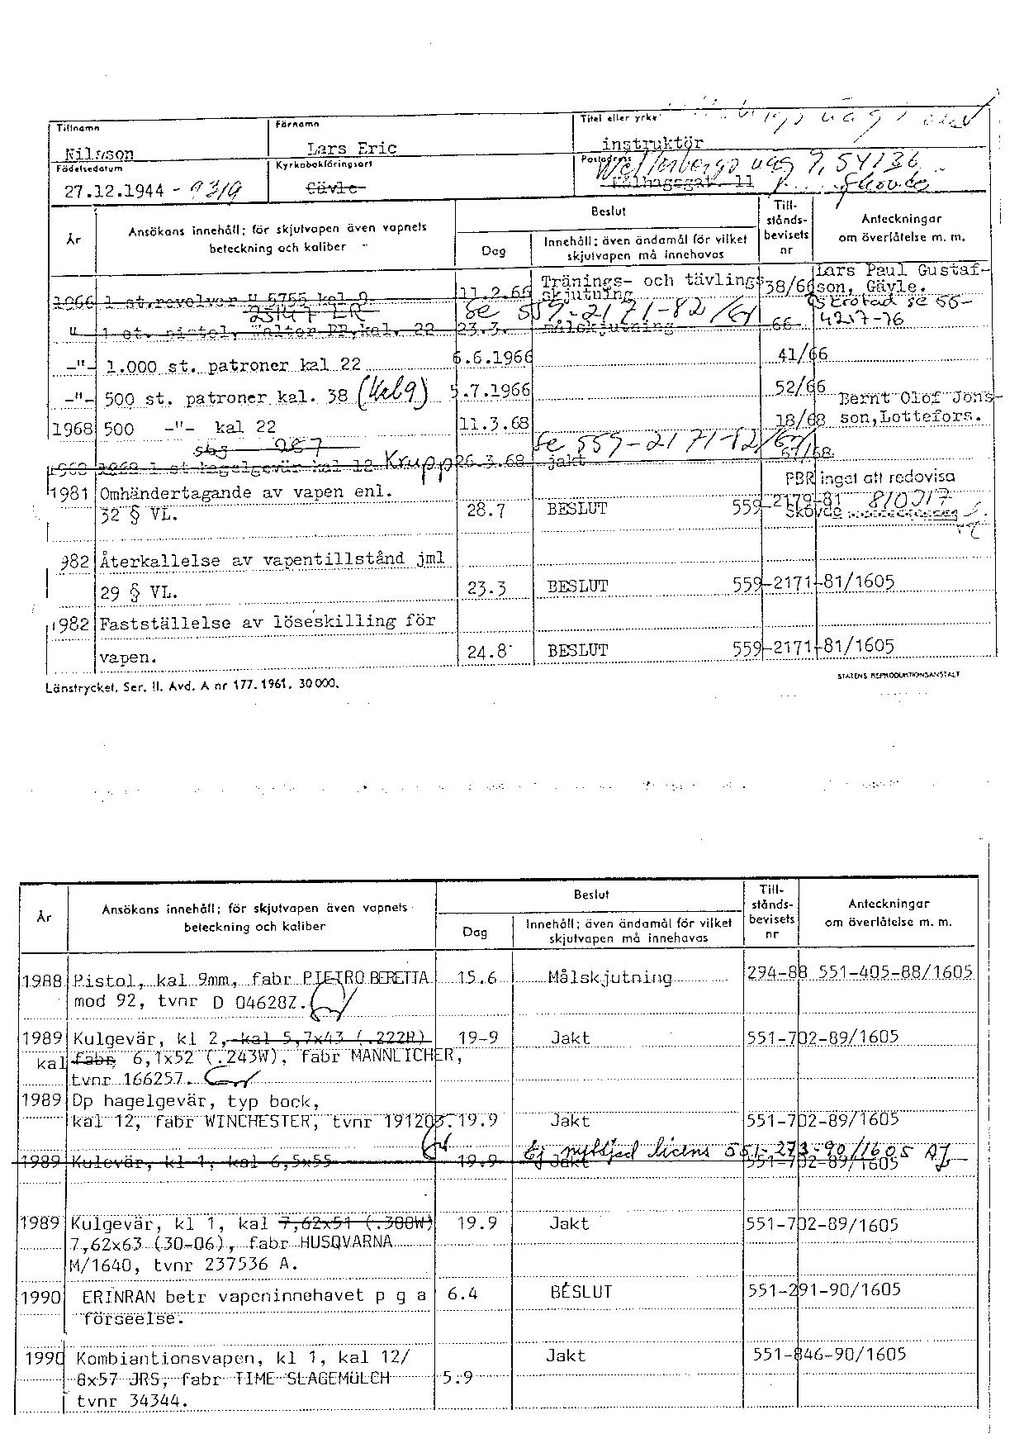 Tillnamn Förnamn Titel eller yrke
Nilsson Lars Eric instruktör
Födelsedatum Kyrkobokföringsort Postadress
27.12.1944 - 9319 Gävle 54136 Skövde
År Ansökans innehåll; för skjutvapen även vapnets beteckning och kaliber Beslut Tillståndsbevisets nr Anteckningar om överlåtelse m. m.
Dag Innehåll; även ändamål för vilket skjutvapen må innehavas
Lars Paul Gustaf-
1966 1 st.revolver kal 9 11.2.66 Tränings- och tävlings 38/66 son, Gävle.
skjutning
Se 559-2171-82
" 1 st. pistol, Walter PP,kal. 22 23.3. målskjutning 66 4217-76
-"- 1.000 st. patroner kal 22 6.6.1966 41/66
-"- 500 st. patroner kal. 38 (kal 9) 5.7.1966 52/66
Bernt Olof Jöns-
1968 500 -"- kal 22 11.3.68 18/68 son,Lottefors.
Se 559-2171-82
1968 1 st hagelgevär kal 12 Krupp 26.3.68 jakt 67/68
1981 Omhändertagande av vapen enl. PBR inget att redovisa
32 § VL. 28.7 BESLUT 559-2179-81 Skövde 810917
982 Återkallelse av vapentillstånd jml
29 § VL. 23.3 BESLUT 559-2171-81/1605
1982 Fastställelse av löseskilling för
vapen. 24.8 BESLUT 559-2171-81/1605
Länstrycket. Ser. II. Avd. A nr 177. 1961. 30 000. STATENS REPRODUKTIONSANSTALT
År Ansökans innehåll; för skjutvapen även vapnets beteckning och kaliber Beslut Tillståndsbevisets nr Anteckningar om överlåtelse m. m.
Dag Innehåll; även ändamål för vilket skjutvapen må innehavas
1988 Pistol, kal 9mm, fabr PIETRO BERETTA 15.6 Målskjutning 294-88 551-405-88/1605
mod 92, tvnr D 04628Z.
1989 Kulgevär, kl 2, kal 5,7x43 (.222R) 19-9 Jakt 551-702-89/1605
kal fabr 6,1x52 (.243W), fabr MANNLICHER,
tvnr 166257.
1989 Dp hagelgevär, typ bock,
kal 12, fabr WINCHESTER, tvnr 191203. 19.9 Jakt 551-702-89/1605
Ej nyttjad licens 551-273-90/1605
1989 Kulevär, kl 1, kal 6,5x55 19.9 Jakt 551-702-89/1605
1989 Kulgevär, kl 1, kal 7,62x51 (.308W) 19.9 Jakt 551-702-89/1605
7,62x63 (30-06), fabr HUSQVARNA
M/1640, tvnr 237536 A.
1990 ERINRAN betr vapeninnehavet p g a 6.4 BESLUT 551-291-90/1605
förseelse.
1990 Kombiantionsvapen, kl 1, kal 12/ Jakt 551-846-90/1605
8x57 JRS, fabr TIME SLAGEMÜLCH 5.9
tvnr 34344.